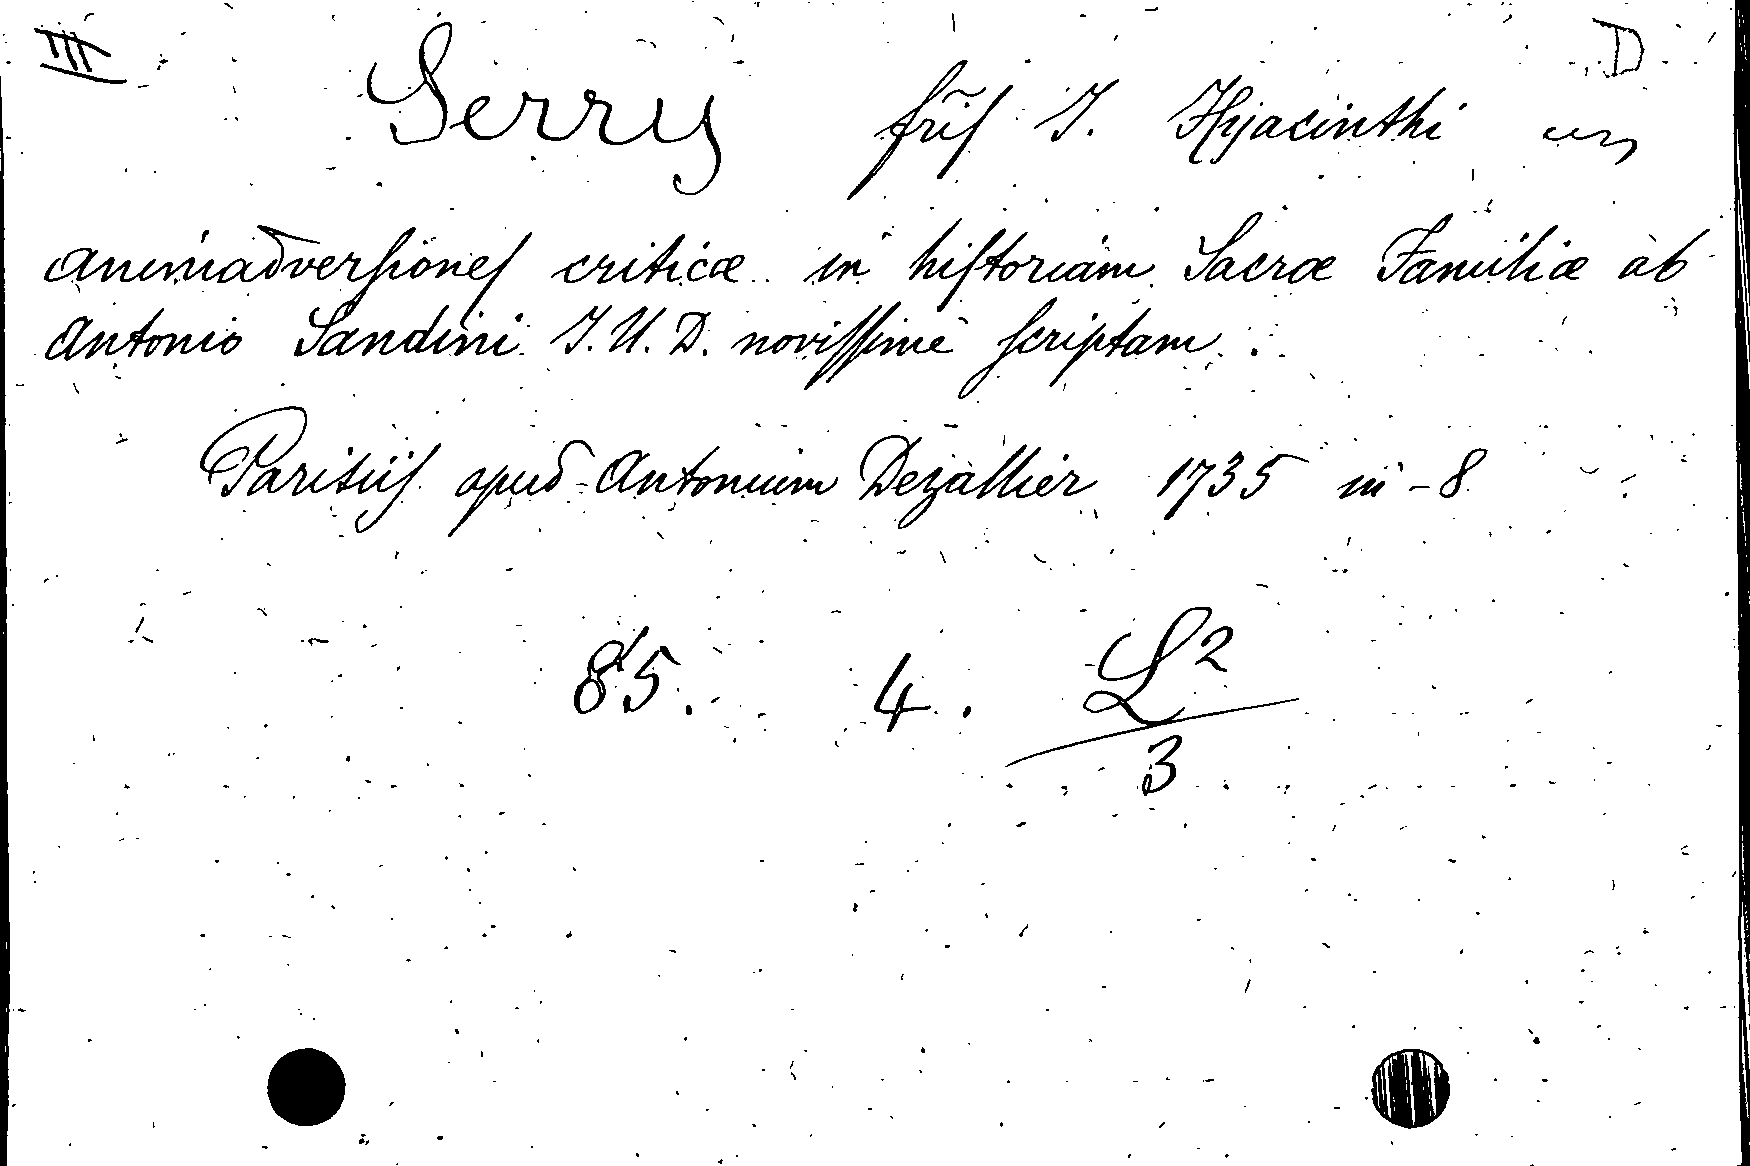 III D
Serry frĩſ J. Hyacinthi
animadverſioneſ criticæ in hiſtoriam Sacræ Familiæ ab
Antonio Sandini J. U. D. noviſſime ſcriptam.
Pariſiiſ apud Antonium Dezallier 1735 in-8
85. 4. L²
3